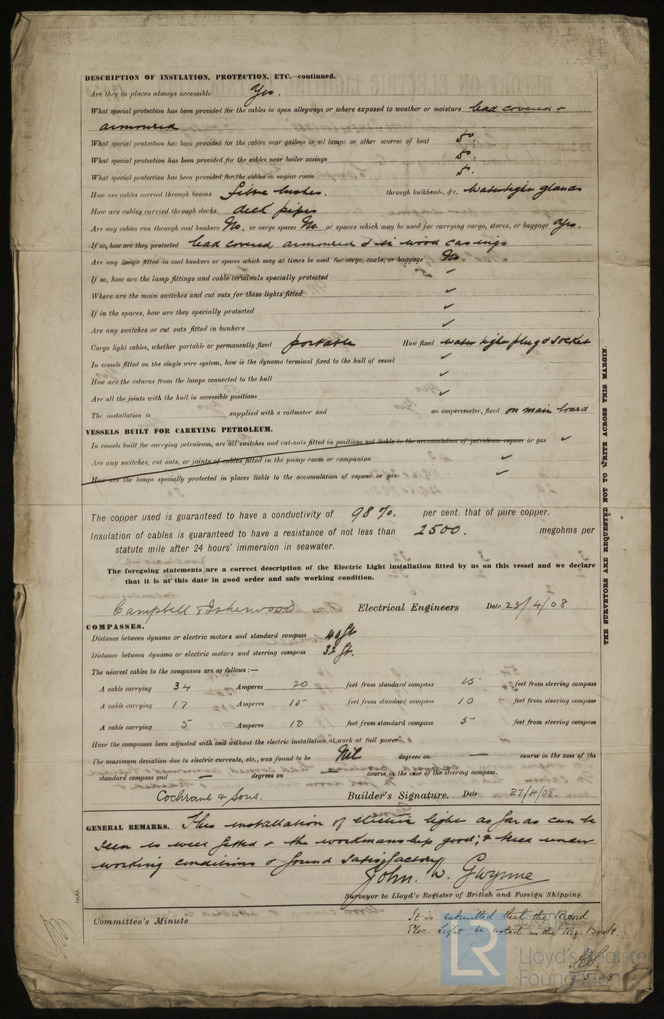 DESCRIPTION OF INSULATION, PROTECTION, ETC.—continued.
Are they in places always accessible Yes.
What special protection has been provided for the cables in open alleyways or where exposed to weather or moisture lead covered &
armoured
What special protection has been provided for the cables near galleys or oil lamps or other sources of heat Do.
What special protection has been provided for the cables near boiler casings Do.
What special protection has been provided for the cables in engine room Do.
How are cables carried through beams fibre bushes. through bulkheads, &c. Watertight glands
How are cables carried through decks deck pipes
Are any cables run through coal bunkers No. or cargo spaces No. or spaces which may be used for carrying cargo, stores, or baggage Yes.
If so, how are they protected lead covered armoured & in wood casings
Are any lamps fitted in coal bunkers or spaces which may at times be used for cargo, coals, or baggage No
If so, how are the lamp fittings and cable terminals specially protected ✓
Where are the main switches and cut outs for these lights fitted ✓
If in the spaces, how are they specially protected ✓
Are any switches or cut outs fitted in bunkers ✓
Cargo light cables, whether portable or permanently fixed portable How fixed watertight plug & socket
In vessels fitted on the single wire system, how is the dynamo terminal fixed to the hull of vessel ✓
How are the returns from the lamps connected to the hull ✓
Are all the joints with the hull in accessible positions ✓
The installation is supplied with a voltmeter and an amperemeter, fixed on main board
VESSELS BUILT FOR CARRYING PETROLEUM.
In vessels built for carrying petroleum, are all switches and cut-outs fitted in positions not liable to the accumulation of petroleum vapour or gas ✓
Are any switches, cut outs, or joints of cables fitted in the pump room or companion ✓
How are the lamps specially protected in places liable to the accumulation of vapour or gas ✓
The copper used is guaranteed to have a conductivity of 98%. per cent. that of pure copper.
Insulation of cables is guaranteed to have a resistance of not less than 2500. megohms per
statute mile after 24 hours' immersion in seawater.
The foregoing statements are a correct description of the Electric Light installation fitted by us on this vessel and we declare
that it is at this date in good order and safe working condition.
Campbell & Isherwood Electrical Engineers Date 23/4/08
COMPASSES.
Distance between dynamo or electric motors and standard compass 40 ft
Distance between dynamo or electric motors and steering compass 32 ft.
The nearest cables to the compasses are as follows:—
A cable carrying 34 Amperes 20 feet from standard compass 15 feet from steering compass
A cable carrying 17 Amperes 15 feet from standard compass 10 feet from steering compass
A cable carrying 5 Amperes 10 feet from standard compass 5 feet from steering compass
Have the compasses been adjusted with and without the electric installation at work at full power
The maximum deviation due to electric currents, etc., was found to be Nil degrees on — course in the case of the
standard compass and — degrees on — course in the case of the steering compass.
Cochrane & Sons. Builder's Signature. Date 27/4/08
GENERAL REMARKS. This installation of electric light as far as can be
seen is well fitted & the workmanship good; & tried under
working conditions & found satisfactory
John. W. Gwynne
Surveyor to Lloyd's Register of British and Foreign Shipping.
Committee's Minute
It is submitted that the Record
Elec. Light be noted in the Reg. Book.
THE SURVEYORS ARE REQUESTED NOT TO WRITE ACROSS THIS MARGIN.
LR
Lloyd's Register
Foundation